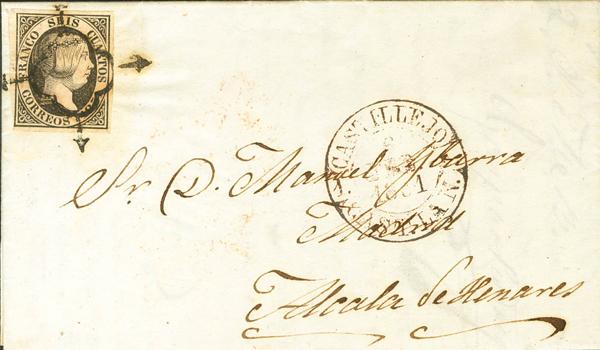 FRANCO SEIS CUARTOS
CORREOS
CASTILLEJO
1851
Sr. D. Manuel Ybarra
Madrid
Alcala de Henares